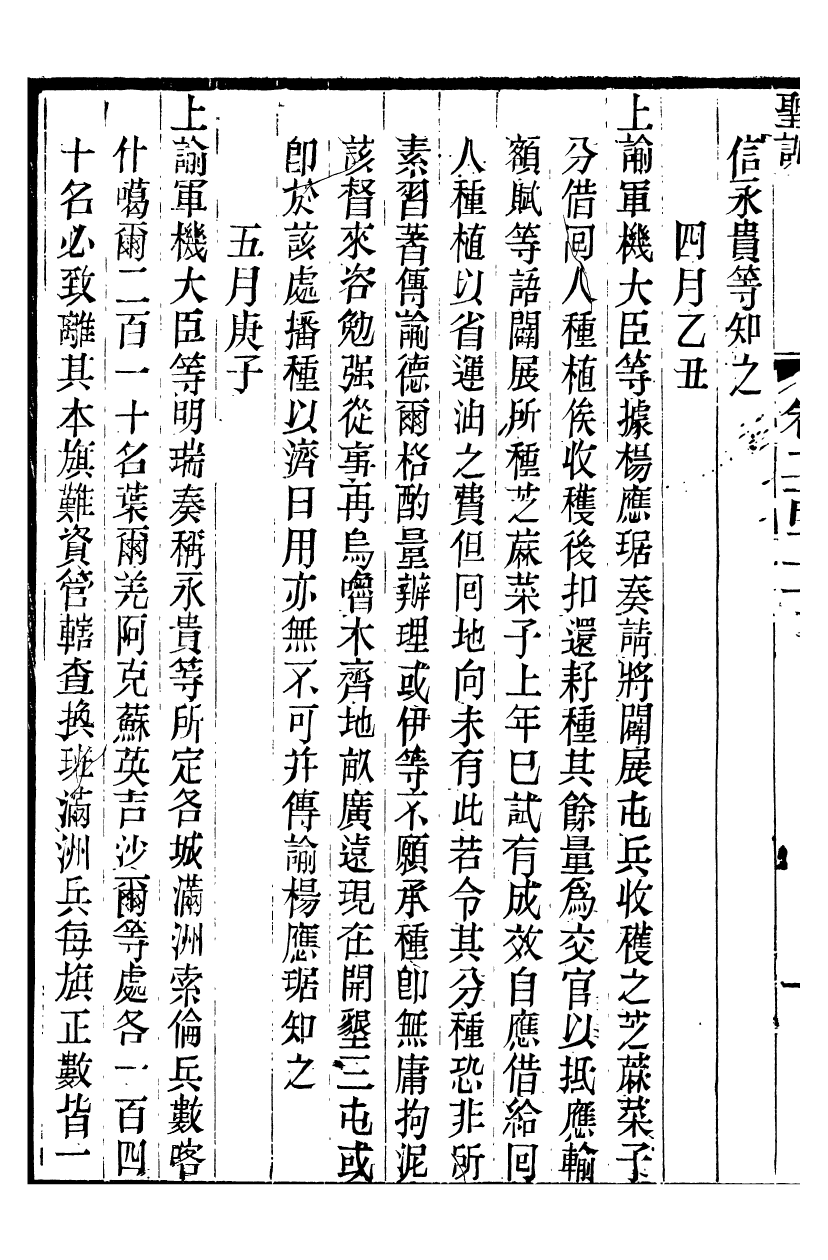 聖訓
信永貴等知之
四月乙丑
上諭軍機大臣等據楊應琚奏請將闢展屯兵收穫之芝蔴菜子
分借回人種植俟收穫後扣還耔種其餘量爲交官以抵應輸
額賦等語闢展所種芝蔴菜子上年已試有成效自應借給回
人種植以省運油之費但回地向未有此若令其分種恐非所
素習著傳諭德爾格酌量辦理或伊等不願承種卽無庸拘泥
該督來咨勉强從事再烏嚕木齊地畝廣遠現在開墾三屯或
卽於該處播種以濟日用亦無不可幷傳諭楊應琚知之
五月庚子
上諭軍機大臣等明瑞奏稱永貴等所定各城滿洲索倫兵數喀
什噶爾二百一十名葉爾羌阿克蘇英吉沙爾等處各一百四
十名必致離其本旗難資管轄查換班滿洲兵每旗正數皆一